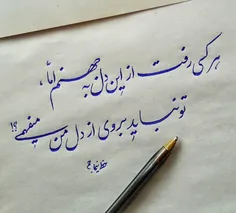 هر کسی رفت از این دل به جهنم امّا،
تو نباید بروی از دل من میفهمی؟!